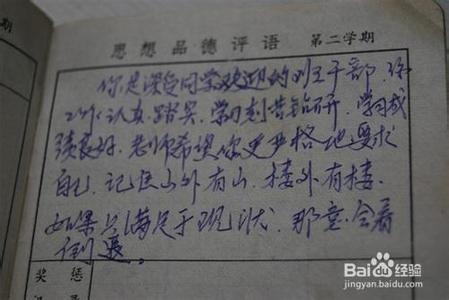 思想品德评语 第二学期
你是深受同学欢迎的
干部,你
工作认真踏实,学习刻苦钻研,学习成
绩良好。老师希望你更严格地要求
自己,记住山外有山,楼外有楼。
如果只满足于现状,那
会
奖惩
Baidu 百度经验
jingyan.baidu.com